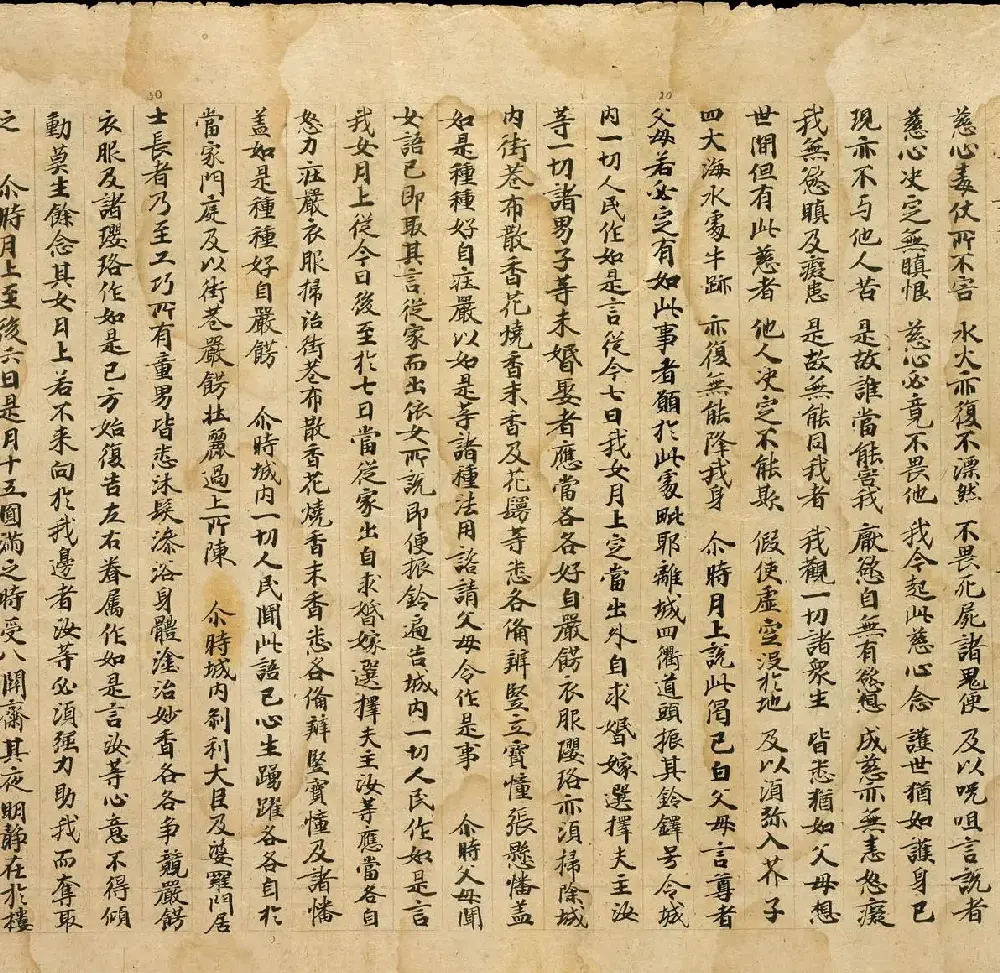 20
30
慈心毒仗所不害 水火亦復不漂然 不畏死屍諸鬼便 及以呪咀言說者
慈心决定無瞋恨 慈心必竟不畏他 我今起此慈心念 護世猶如護身已
現亦不与他人苦 是故誰當能害我 厭慾自無有慾想 成慈亦無恚怒癡
我無慾瞋及癡恚 是故無能同我者 我觀一切諸衆生 皆悉猶如父母想
世間但有此慈者 他人决定不能欺 假使虛空没於地 及以須弥入芥子
四大海水處牛跡 亦復無能降我身 尒時月上說此偈已白父母言尊者
父母若必定有如此事者願於此處毗耶離城四衢道頭振其鈴鐸号令城
内一切人民作如是言從今七日我女月上定當出外自求婚嫁選擇夫主汝
等一切諸男子等未婚娶者應當各各好自嚴餝衣服瓔珞亦須掃除城
内街巷布散香花燒香末香及花鬘等悉各俻辦竪立寶幢張懸幡盖
如是種種好自莊嚴以如是等諸種法用諮請父母令作是事 尒時父母聞
女語已即取其言從家而出依女所說即便振鈴遍告城内一切人民作如是言
我女月上從今日後至於七日當從家出自求婚嫁選擇夫主汝等應當各自
怒力莊嚴衣服掃治街巷布散香花燒香末香悉各俻辦竪寶幢及諸幡
盖如是種種好自嚴餝 尒時城内一切人民聞此語已心生踊躍各各自於
當家門庭及以街巷嚴餝壯麗過上所陳 尒時城内刹利大臣及婆羅門居
士長者乃至工巧所有童男皆悉沐髮澡浴身體塗治妙香各各争競嚴餝
衣服及諸瓔珞作如是已方始復告左右眷属作如是言汝等心意不得傾
動莫生餘念其女月上若不来向於我邊者汝等必須强力助我而奪取
之 尒時月上至後六日是月十五圓滿之時受八關齋其夜明静在於樓